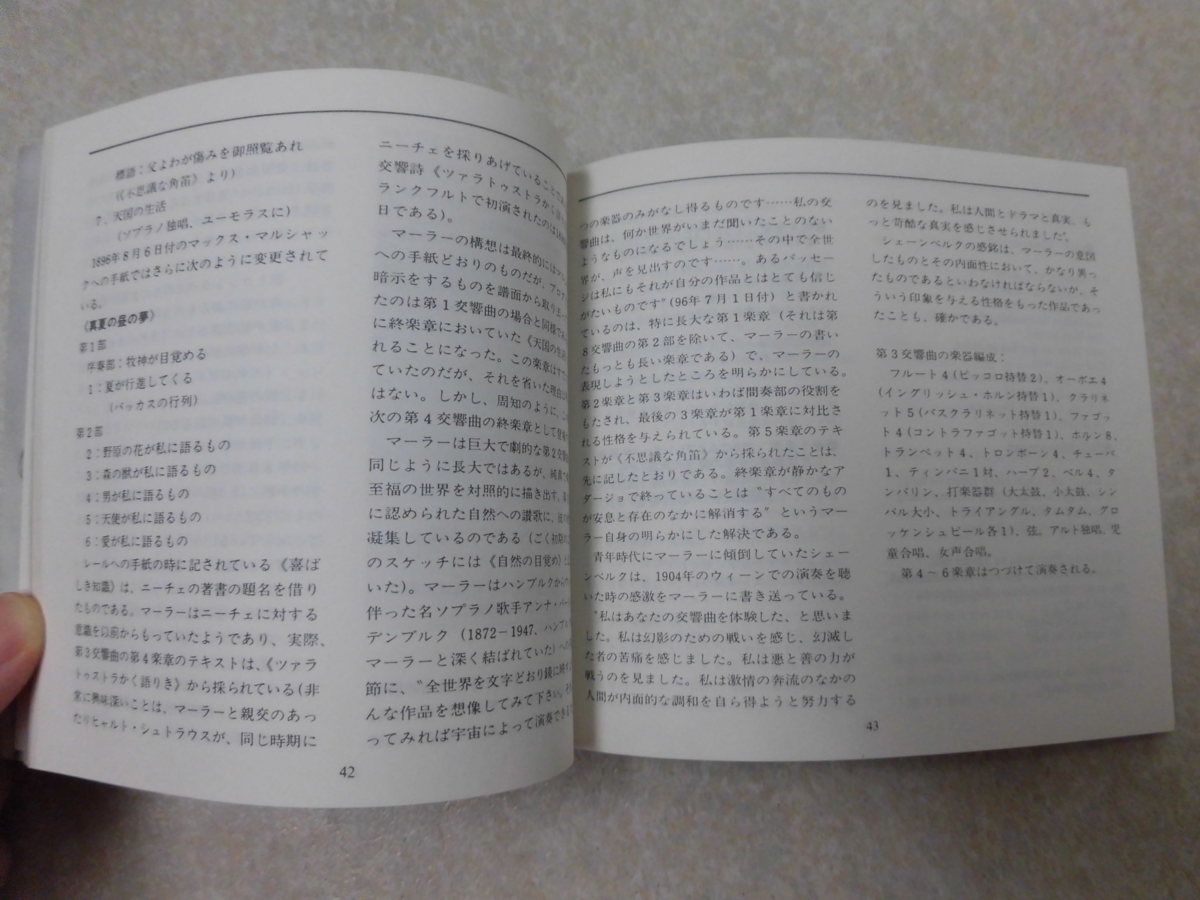 標語：父よわが傷みを御照覧あれ
(《不思議な角笛》より)
7、天国の生活
(ソプラノ独唱、ユーモラスに)
1896年8月6日付のマックス・マルシャッ
クへの手紙ではさらに次のように変更されて
いる。
《真夏の昼の夢》
第1部
序奏部：牧神が目覚める
1：夏が行進してくる
(バッカスの行列)
第2部
2：野原の花が私に語るもの
3：森の獣が私に語るもの
4：男が私に語るもの
5：天使が私に語るもの
6：愛が私に語るもの
レールへの手紙の時に記されている《喜ば
しき知識》は、ニーチェの著書の題名を借り
たものである。マーラーはニーチェに対する
意識を以前からもっていたようであり、実際、
第3交響曲の第4楽章のテキストは、《ツァラ
トゥストラかく語りき》から採られている(非
常に興味深いことは、マーラーと親交のあっ
たリヒャルト・シュトラウスが、同じ時期に
ニーチェを採りあげていることで
交響詩《ツァラトゥストラかく
ランクフルトで初演されたのは
日である)。
マーラーの構想は最終的には
への手紙どおりのものだが、
暗示をするものを譜面から取り
たのは第1交響曲の場合と同様
に終楽章においていた《天国の生
れることになった。この楽章は
ていたのだが、それを省いた理由
はない。しかし、周知のように、
次の第4交響曲の終楽章として
マーラーは巨大で劇的な第2交
同じように長大ではあるが、純
至福の世界を対照的に描き出す。
に認められた自然への讃歌に、
凝集しているのである(ごく初期
のスケッチには《自然の目覚め》と
いた)。マーラーはハンブルクから
伴った名ソプラノ歌手アンナ・
デンブルク(1872－1947、ハンブル
マーラーと深く結ばれていた)への
節に、“全世界を文字どおり鏡に
んな作品を想像してみて下さい。
ってみれば宇宙によって演奏できる
42
つの楽器のみがなし得るものです……私の交
響曲は、何か世界がいまだ聞いたことのない
ようなものになるでしょう……その中で全世
界が、声を見出すのです……。あるパッセー
ジは私にもそれが自分の作品とはとても信じ
がたいものです”(96年7月1日付)と書かれ
ているのは、特に長大な第1楽章(それは第
8交響曲の第2部を除いて、マーラーの書い
たもっとも長い楽章である)で、マーラーの
表現しようとしたところを明らかにしている。
第2楽章と第3楽章はいわば間奏部の役割を
もたされ、最後の3楽章が第1楽章に対比さ
れる性格を与えられている。第5楽章のテキ
ストが《不思議な角笛》から採られたことは、
先に記したとおりである。終楽章が静かなア
ダージョで終っていることは“すべてのもの
が安息と存在のなかに解消する”というマー
ラー自身の明らかにした解決である。
青年時代にマーラーに傾倒していたシェー
ンベルクは、1904年のウィーンでの演奏を聴
いた時の感激をマーラーに書き送っている。
“私はあなたの交響曲を体験した、と思いま
した。私は幻影のための戦いを感じ、幻滅し
た者の苦痛を感じました。私は悪と善の力が
戦うのを見ました。私は激情の奔流のなかの
人間が内面的な調和を自ら得ようと努力する
のを見ました。私は人間とドラマと真実、も
っと苛酷な真実を感じさせられました”。
シェーンベルクの感銘は、マーラーの意図
したものとその内面性において、かなり異っ
たものであるといわなければならないが、そ
ういう印象を与える性格をもった作品であっ
たことも、確かである。
第3交響曲の楽器編成：
フルート4(ピッコロ持替2)、オーボエ4
(イングリッシュ・ホルン持替1)、クラリネ
ット5(バスクラリネット持替1)、ファゴッ
ト4(コントラファゴット持替1)、ホルン8、
トランペット4、トロンボーン4、チューバ
1、ティンパニ1対、ハープ2、ベル4、タ
ンバリン、打楽器群(大太鼓、小太鼓、シン
バル大小、トライアングル、タムタム、グロ
ッケンシュピール各1)、弦。アルト独唱、児
童合唱、女声合唱。
第4～6楽章はつづけて演奏される。
43